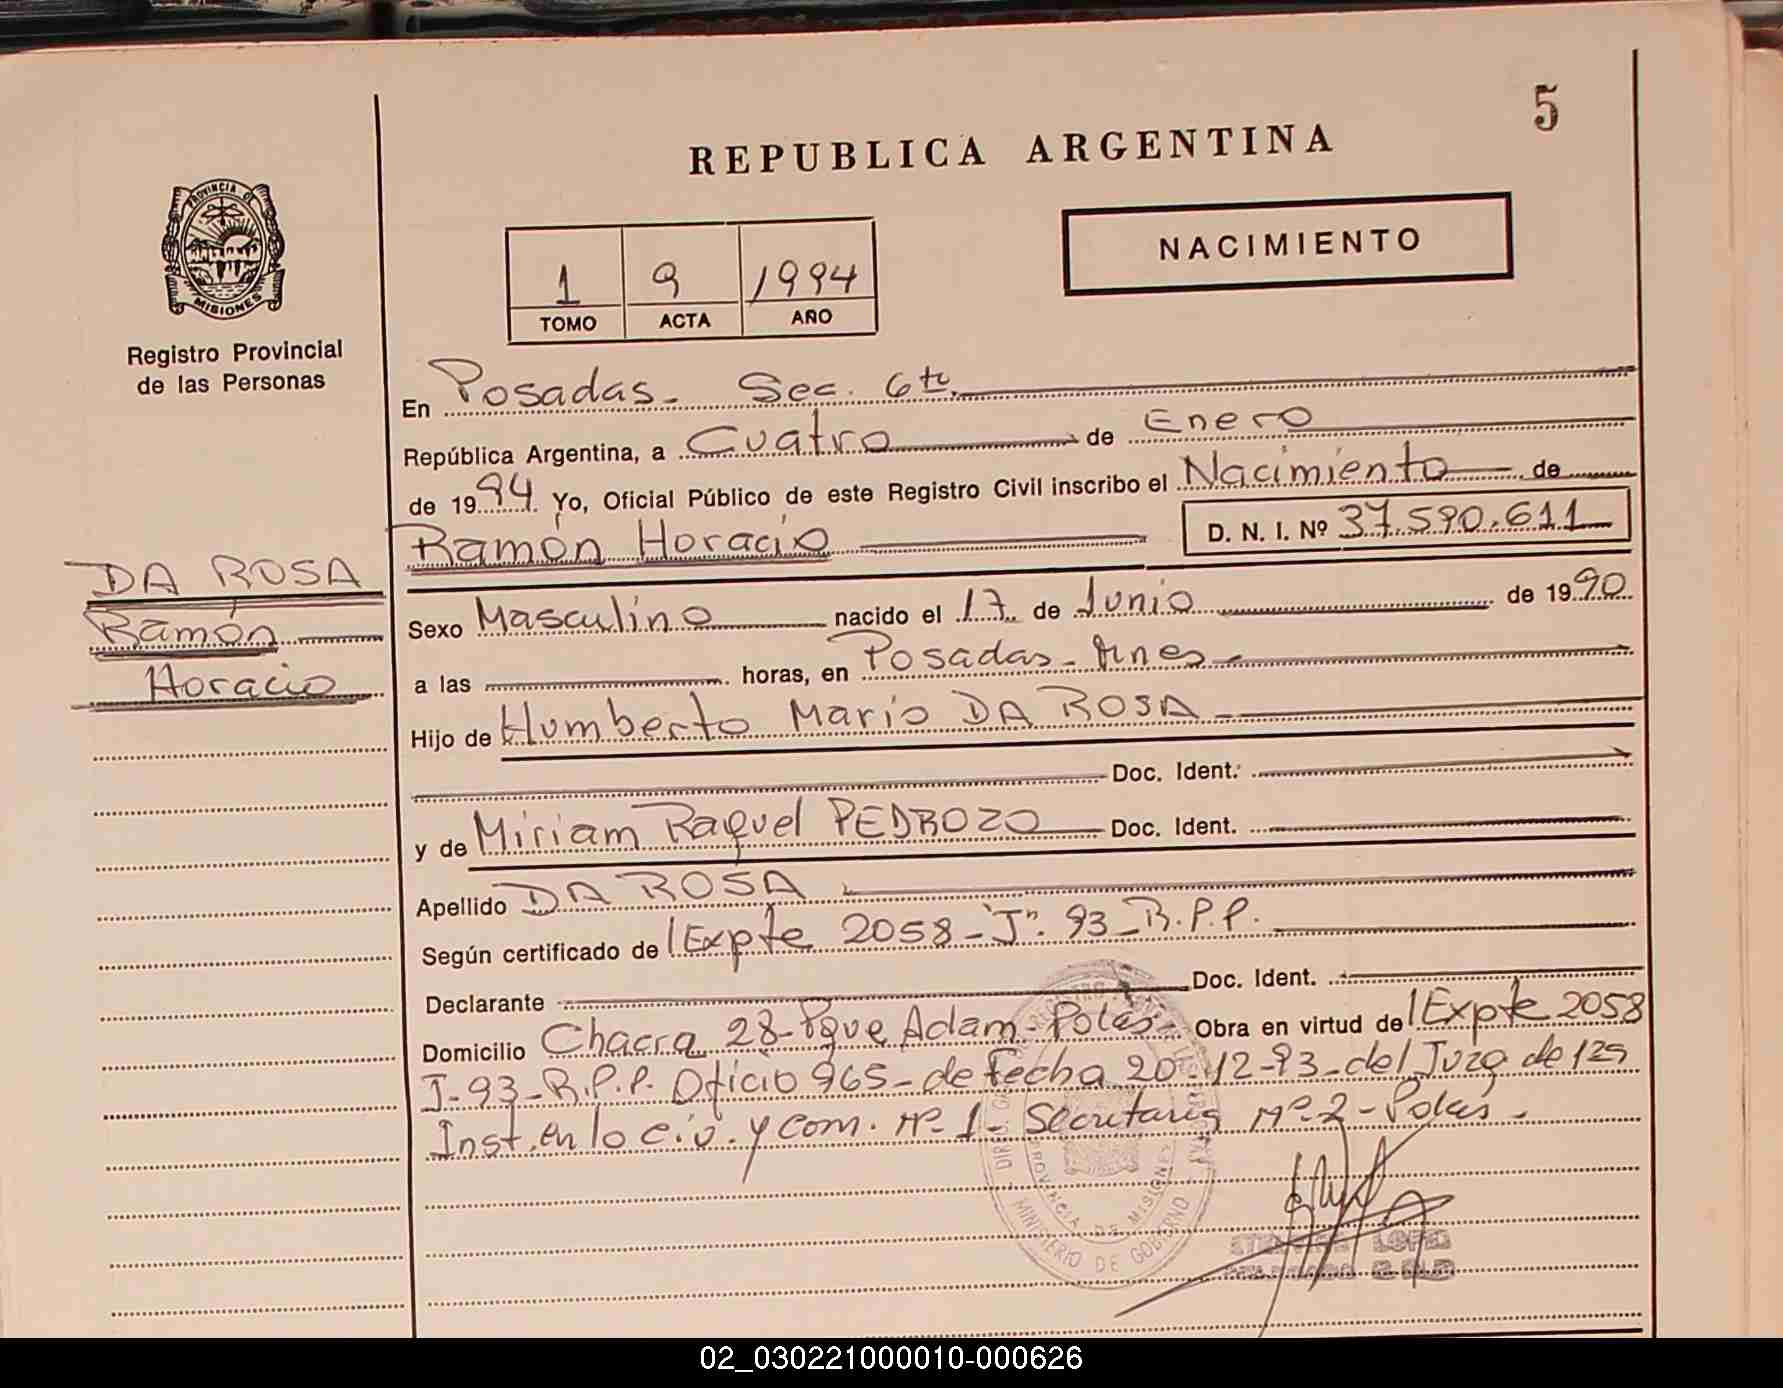 5
REPUBLICA ARGENTINA
PROVINCIA DE
MISIONES
Registro Provincial
de las Personas
1 9 1994
TOMO ACTA AÑO
NACIMIENTO
En Posadas - Sec. 6ta.
República Argentina, a Cuatro de Enero
de 1994 Yo, Oficial Público de este Registro Civil inscribo el Nacimiento de
Ramón Horacio D. N. I. Nº 37.590.611
DA ROSA
Ramón
Horacio
Sexo Masculino nacido el 17 de Junio de 1990
a las horas, en Posadas - Mnes -
Hijo de Humberto Mario DA ROSA
Doc. Ident.
y de Miriam Raquel PEDROZO Doc. Ident.
Apellido DA ROSA
Según certificado de Expte 2058 - "J". 93 - R.P.P.
Declarante Doc. Ident.
Domicilio Chacra 28 - Pque Adam - Pdas - Obra en virtud de Expte 2058
J - 93 - R.P.P. Oficio 965 - de Fecha 20-12-93 - del Juzg de 1ra
Inst. en lo c.iv. y com. Nº 1 - Secretaria Nº 2 - Pdas -
PROVINCIA DE MISIONES
MINISTERIO DE GOBIERNO
LOPEZ
02_030221000010-000626